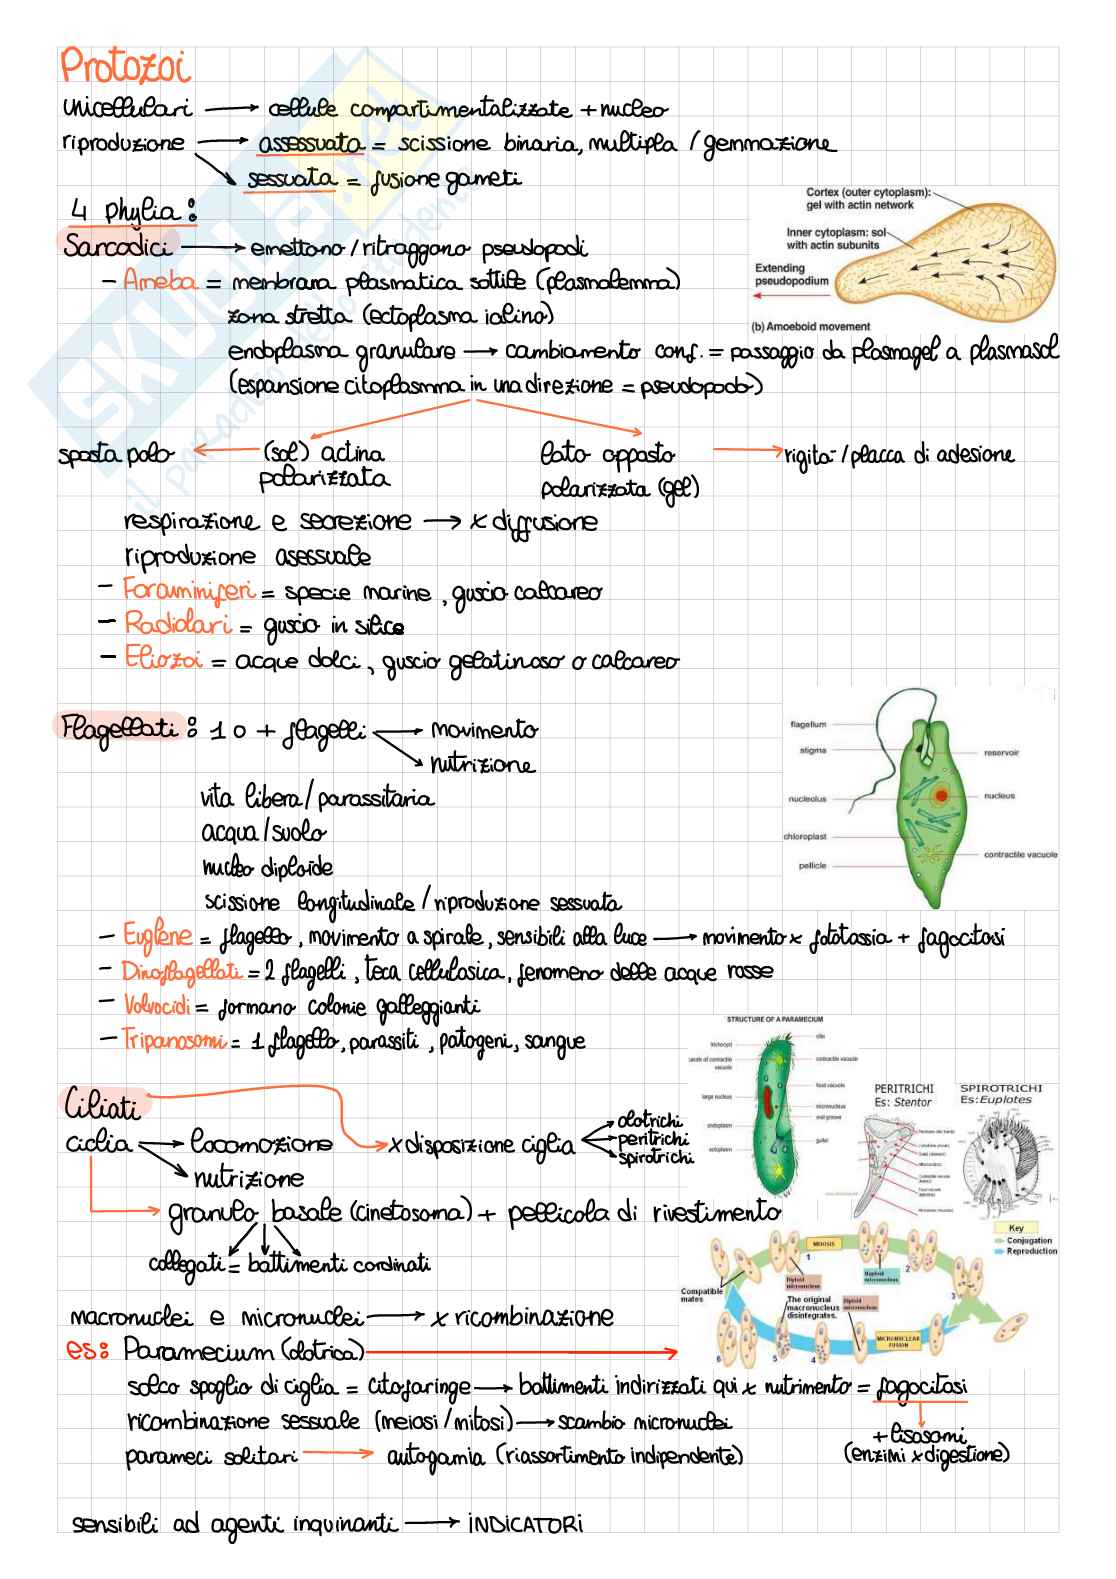 Protozoi
unicellulari → cellule compartimentalizzate + nucleo
riproduzione → assessuata = scissione binaria, multipla / gemmazione
sessuata = fusione gameti
4 phylia:
Sarcodici → emettono/ritraggono pseudopodi
- Ameba = membrana plasmatica sottile (plasmalemma)
zona stretta (ectoplasma ialino)
endoplasma granulare → cambiamento conf. = passaggio da plasmagel a plasmasol
(espansione citoplasmma in una direzione = pseudopodo)
Cortex (outer cytoplasm):
gel with actin network
Inner cytoplasm: sol
with actin subunits
Extending
pseudopodium
(b) Amoeboid movement
sposta polo ← (sol) actina polarizzata
lato opposto polarizzata (gel) → rigità / placca di adesione
respirazione e secrezione → x diffusione
riproduzione asessuale
- Foraminiferi = specie marine, guscio calcareo
- Radiolari = guscio in silice
- Eliozoi = acque dolci, guscio gelatinoso o calcareo
Flagellati: 1 o + flagelli → movimento
→ nutrizione
vita libera/parassitaria
acqua/suolo
nucleo diploide
scissione longitudinale/riproduzione sessuata
flagellum
stigma
reservoir
nucleolus
nucleus
chloroplast
contractile vacuole
pellicle
- Euglene = flagello, movimento a spirale, sensibili alla luce → movimento x fototassia + fagocitosi
- Dinoflagellati = 2 flagelli, teca cellulosica, fenomeno delle acque rosse
- Volvocidi = formano colonie galleggianti
- Tripanosomi = 1 flagello, parassiti, patogeni, sangue
STRUCTURE OF A PARAMECIUM
cilia
trichocyst
contractile vacuole
canals of contractile
vacuole
food vacuole
large nucleus
micronucleus
oral groove
endoplasm
gullet
ectoplasm
PERITRICHI
Es: Stentor
SPIROTRICHI
Es:Euplotes
Ciliati
ciclia → locomozione
→ nutrizione
x disposizione ciglia → olotrichi
peritrichi
spirotrichi
granulo basale (cinetosoma) + pellicola di rivestimento
collegati = battimenti cordinati
macronuclei e micronuclei → x ricombinazione
es: Paramecium (olotrica) →
Key
Conjugation
Reproduction
MEIOSIS
1
2
3
4
5
6
Compatible
mates
Diploid
micronucleus
Haploid
micronucleus
The original
macronucleus
disintegrates.
Diploid
micronucleus
MICRONUCLEAR
FUSION
solco spoglio di ciglia = citofaringe → battimenti indirizzati qui x nutrimento = fagocitosi
ricombinazione sessuale (meiosi/mitosi) → scambio micronuclei
+ lisosomi
(enzimi x digestione)
parameci solitari → autogamia (riassortimento indipendente)
sensibili ad agenti inquinanti → INDICATORI
SKUOLA.net